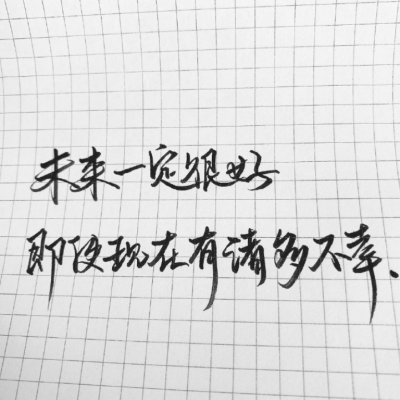 未来一定很好
即使现在有诸多不幸、